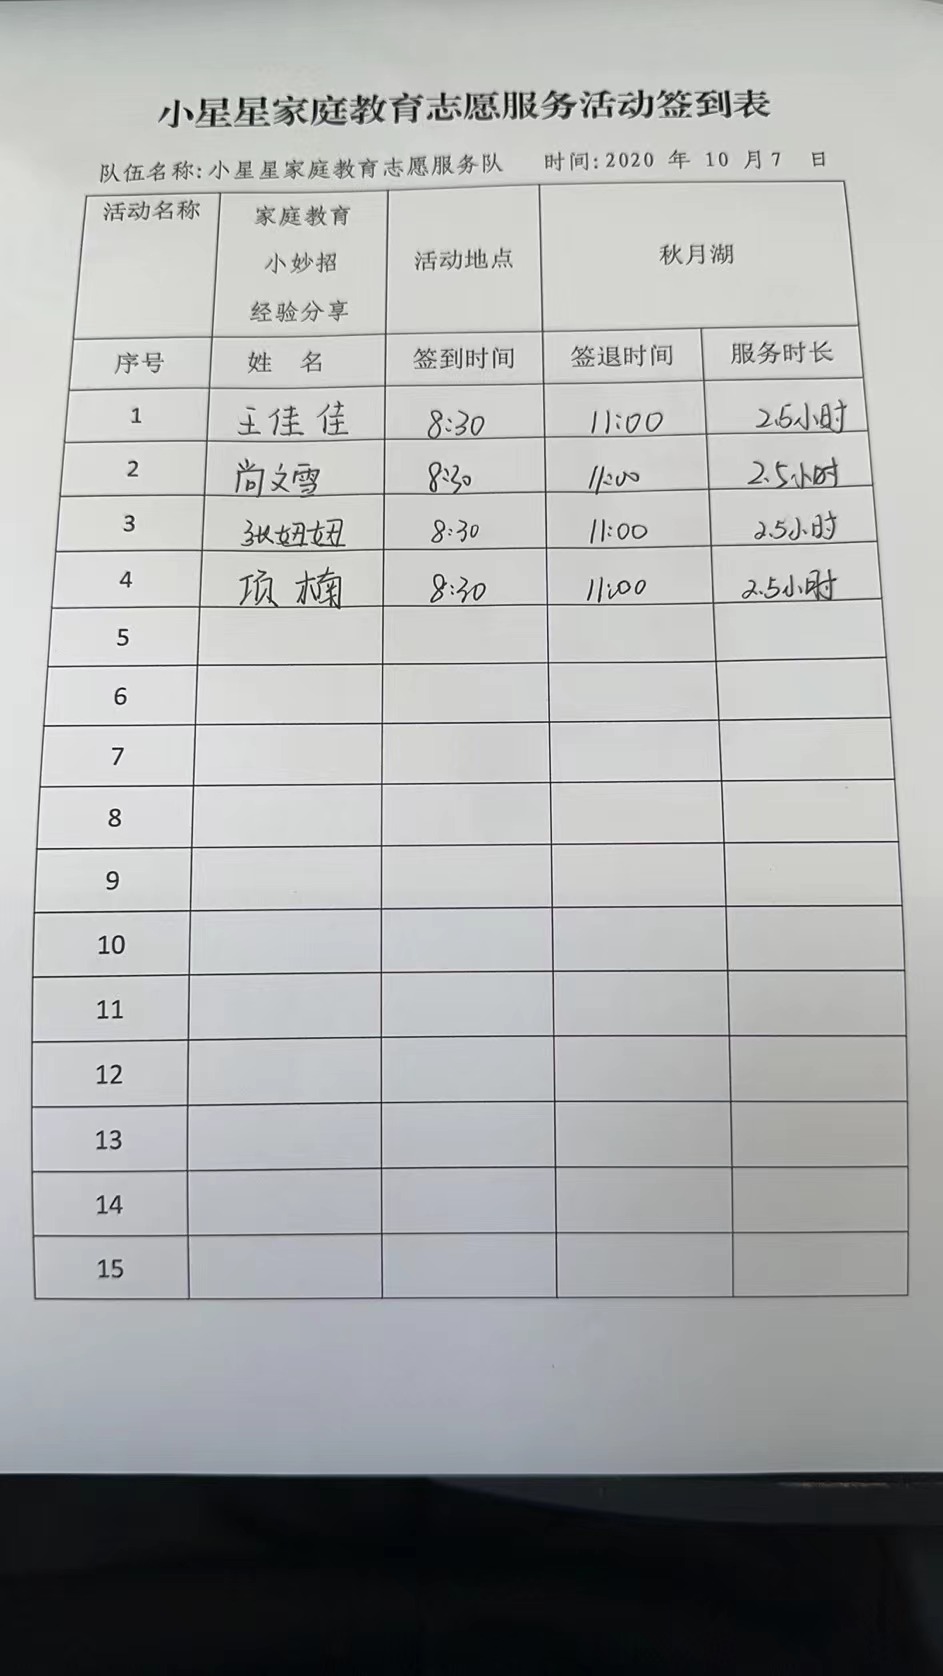 小星星家庭教育志愿服务活动签到表
队伍名称:小星星家庭教育志愿服务队 时间:2020 年 10 月 7 日
活动名称 家庭教育 小妙招 经验分享 活动地点 秋月湖
序号 姓 名 签到时间 签退时间 服务时长
1 王佳佳 8:30 11:00 2.5小时
2 尚文雪 8:30 11:00 2.5小时
3 张妞妞 8:30 11:00 2.5小时
4 项楠 8:30 11:00 2.5小时
5
6
7
8
9
10
11
12
13
14
15